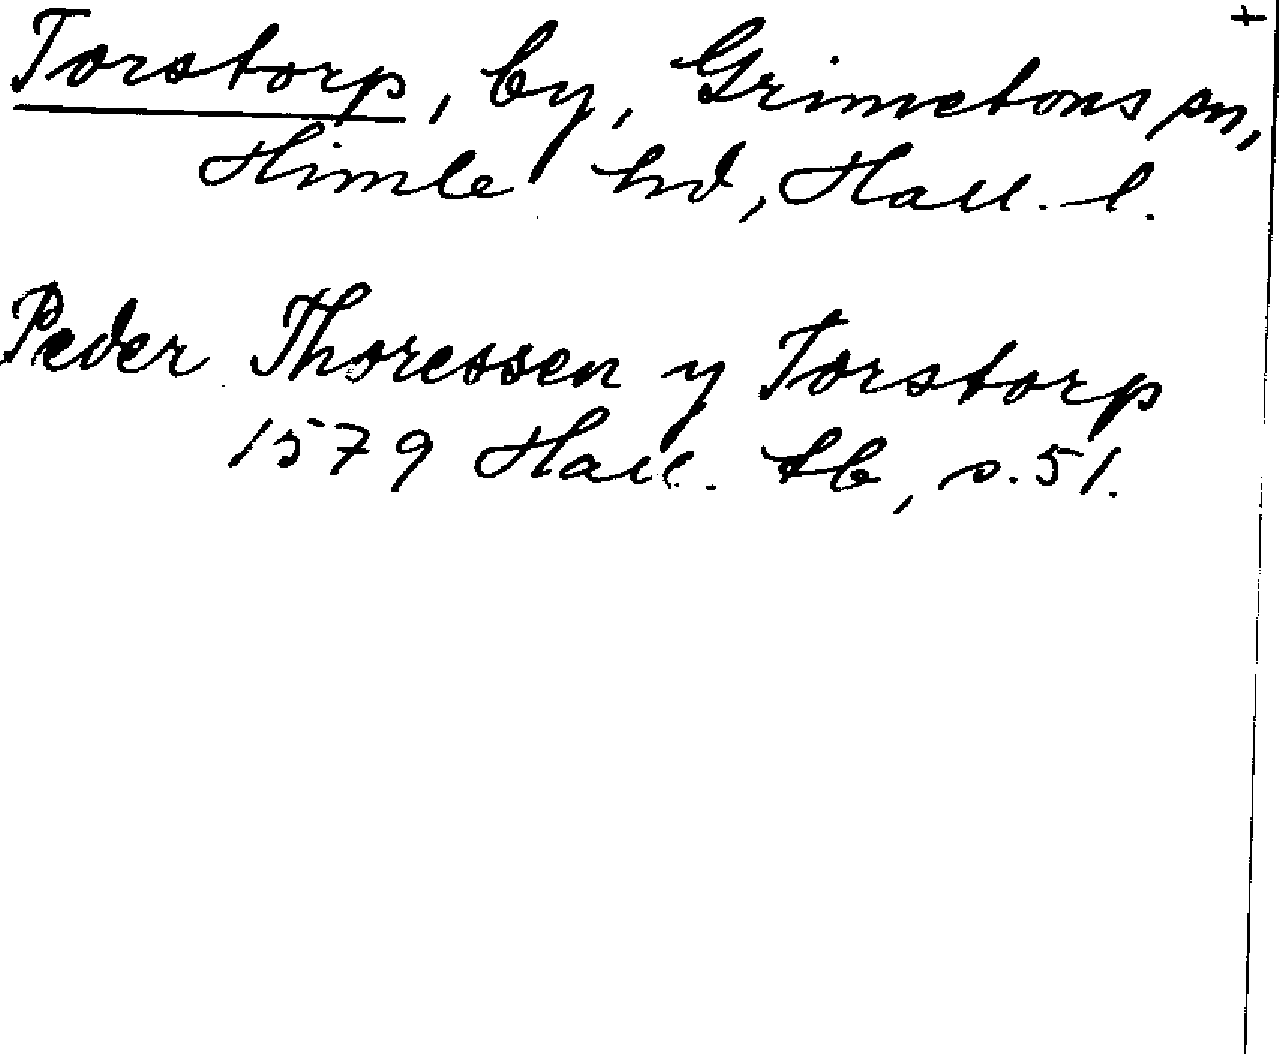 +
Torstorp, by, Grimetons sn,
Himle hd, Hall. l.
Peder Thoressen y Torstorp
1579 Hall. tb, s. 51.